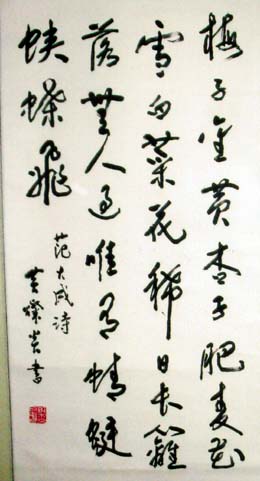 梅子金黄杏子肥麦花
雪白菜花稀日长籬
落無人过唯有蜻蜓
蛱蝶飛
范大成诗
書